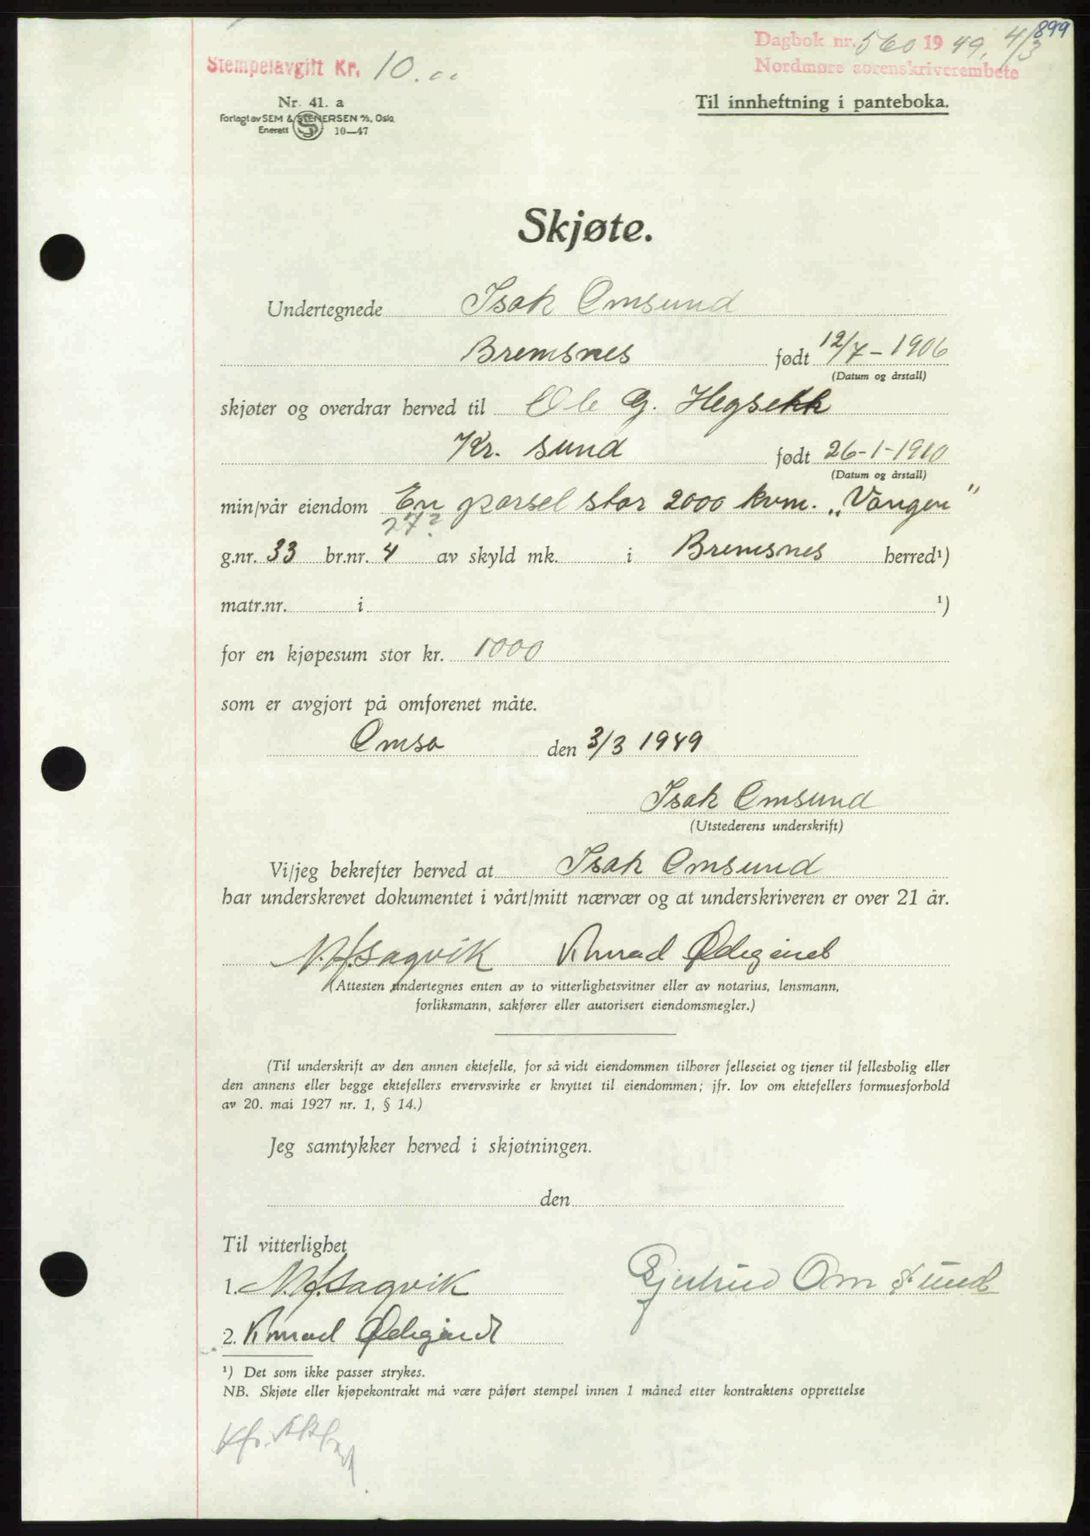 899
Dagbok nr. 560 1949, 4/3
Nordmøre sorenskriverembete
Stempelavgift Kr. 10.00
Nr. 41. a
Forlagt av SEM & STENERSEN A/S, Oslo
Enerett 10—47
Til innheftning i panteboka.
Skjøte.
Undertegnede Isak Omsund
Bremsnes født 12/7-1906
(Datum og årstall)
skjøter og overdrar herved til Ole G. Hegsekk
Kr. sund født 26-1-1910
(Datum og årstall)
min/vår eiendom En parsel stor 2000 kvm. „Vangen"
272
g.nr. 33 br.nr. 4 av skyld mk. i Bremsnes herred¹)
matr.nr. i ¹)
for en kjøpesum stor kr. 1000
som er avgjort på omforenet måte.
Omsa den 3/3 1949
Isak Omsund
(Utstederens underskrift)
Vi/jeg bekrefter herved at Isak Omsund
har underskrevet dokumentet i vårt/mitt nærvær og at underskriveren er over 21 år.
N. H. Sagvik Konrad Ødegård
(Attesten undertegnes enten av to vitterlighetsvitner eller av notarius, lensmann,
forliksmann, sakfører eller autorisert eiendomsmegler.)
(Til underskrift av den annen ektefelle, for så vidt eiendommen tilhører felleseiet og tjener til fellesbolig eller
den annens eller begge ektefellers ervervsvirke er knyttet til eiendommen; jfr. lov om ektefellers formuesforhold
av 20. mai 1927 nr. 1, § 14.)
Jeg samtykker herved i skjøtningen.
den
Til vitterlighet
1. N. H. Sagvik Gjertrud Omsund
2. Konrad Ødegård
¹) Det som ikke passer strykes.
NB. Skjøte eller kjøpekontrakt må være påført stempel innen 1 måned etter kontraktens opprettelse